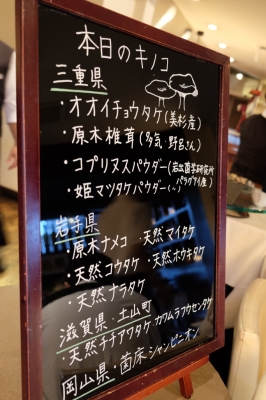 本日のキノコ
三重県
・オオイチョウタケ(美杉産)
・原木椎茸(多気・野呂さん)
・コプリーヌスパウダー(岩出菌学研究所
・姫マツタケパウダー(〃) パラグアイ産)
岩手県
・原木ナメコ ・天然マイタケ
・天然コウタケ ・天然ホウキタケ
・天然ナラタケ
滋賀県・土山町
・天然チチアワタケ カワムラフウセンタケ
岡山県 菌床シャンピニオン